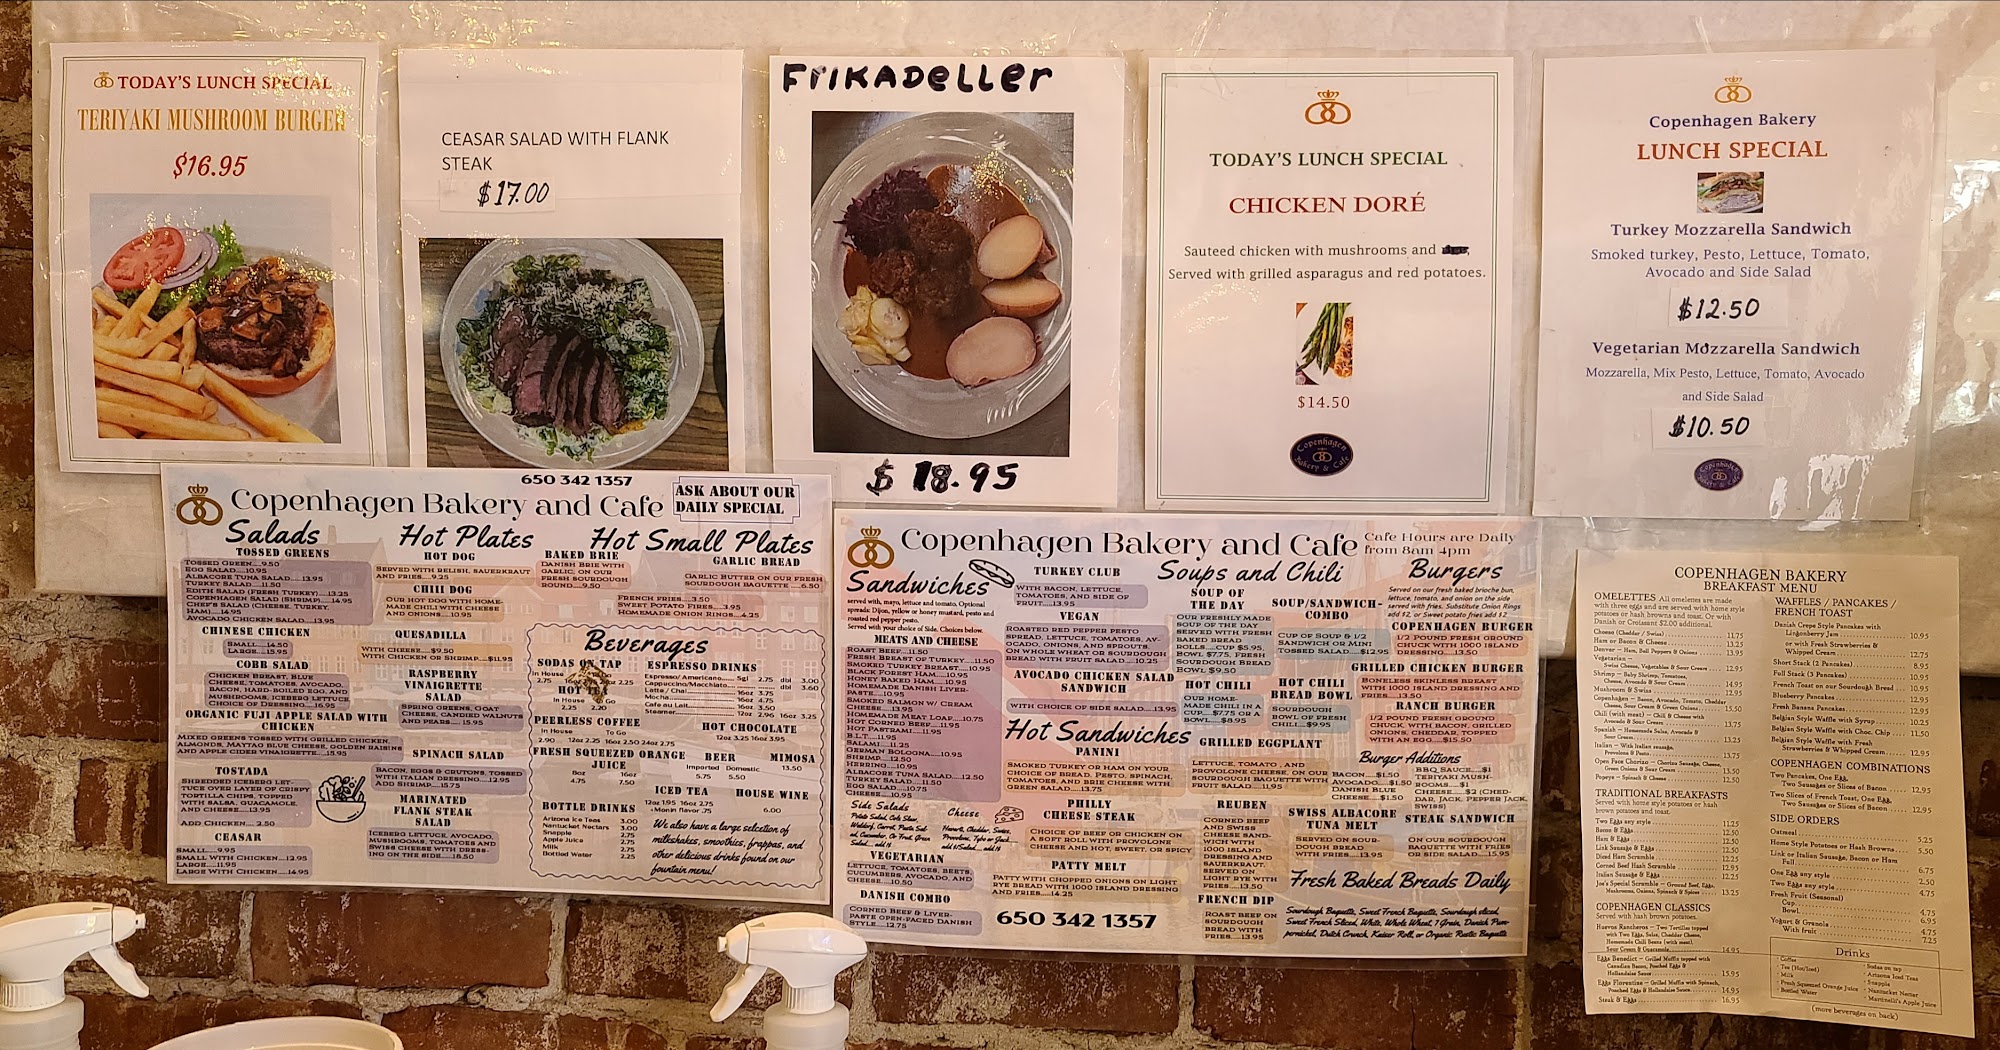 TODAY'S LUNCH SPECIAL
TERIYAKI MUSHROOM BURGER
$16.95
CEASAR SALAD WITH FLANK
STEAK
$17.00
FrIKADeLLer
$ 18.95
TODAY'S LUNCH SPECIAL
CHICKEN DORÉ
Sauteed chicken with mushrooms and
Served with grilled asparagus and red potatoes.
$14.50
Copenhagen
Bakery & Cafe
Copenhagen Bakery
LUNCH SPECIAL
Turkey Mozzarella Sandwich
Smoked turkey, Pesto, Lettuce, Tomato,
Avocado and Side Salad
$12.50
Vegetarian Mozzarella Sandwich
Mozzarella, Mix Pesto, Lettuce, Tomato, Avocado
and Side Salad
$10.50
650 342 1357
Copenhagen Bakery and Cafe
ASK ABOUT OUR
DAILY SPECIAL
Salads
TOSSED GREENS
TOSSED GREEN.....9.50
EGG SALAD.....10.95
ALBACORE TUNA SALAD.....13.95
TURKEY SALAD.....11.50
EDITH SALAD (FRESH TURKEY)....13.25
COPENHAGEN SALAD (SHRIMP).....14.95
CHEF'S SALAD (CHEESE, TURKEY,
HAM).....14.95
AVOCADO CHICKEN SALAD.....13.95
CHINESE CHICKEN
SMALL.....14.50
LARGE.....15.95
COBB SALAD
CHICKEN BREAST, BLUE
CHEESE, TOMATOES, AVOCADO,
BACON, HARD-BOILED EGG, AND
MUSHROOMS, ICEBERG LETTUCE
CHOICE OF DRESSING.....16.95
ORGANIC FUJI APPLE SALAD WITH
CHICKEN
MIXED GREENS TOSSED WITH GRILLED CHICKEN,
ALMONDS, MAYTAG BLUE CHEESE, GOLDEN RAISINS
AND APPLE CIDER VINAIGRETTE.....15.95
TOSTADA
SHREDDED ICEBERG LET-
TUCE OVER LAYER OF CRISPY
TORTILLA CHIPS, TOPPED
WITH SALSA, GUACAMOLE,
AND CHEESE.....13.95
ADD CHICKEN..... 2.50
CEASAR
SMALL.....9.95
SMALL WITH CHICKEN.....12.95
LARGE.....11.95
LARGE WITH CHICKEN.....14.95
Hot Plates
HOT DOG
SERVED WITH RELISH, SAUERKRAUT
AND FRIES.....9.25
CHILI DOG
OUR HOT DOG WITH HOME-
MADE CHILI WITH CHEESE
AND ONIONS.....10.95
QUESADILLA
WITH CHEESE.....$9.50
WITH CHICKEN OR SHRIMP.....$11.95
RASPBERRY
VINAIGRETTE
SALAD
SPRING GREENS, GOAT
CHEESE, CANDIED WALNUTS
AND PEARS..... 15.95
SPINACH SALAD
BACON, EGGS & CRUTONS, TOSSED
WITH ITALIAN DRESSING.....12.95
ADD SHRIMP.....15.75
MARINATED
FLANK STEAK
SALAD
ICEBERG LETTUCE, AVOCADO,
MUSHROOMS, TOMATOES AND
SWISS CHEESE WITH DRESS-
ING ON THE SIDE.....18.50
Hot Small Plates
BAKED BRIE
DANISH BRIE WITH
GARLIC, ON OUR
FRESH SOURDOUGH
ROUND.....9.50
GARLIC BREAD
GARLIC BUTTER ON OUR FRESH
SOURDOUGH BAGUETTE .....6.50
FRENCH FRIES.....3.50
SWEET POTATO FIRES.....3.95
HOMEMADE ONION RINGS.....4.25
Beverages
SODAS ON TAP
In House
2.75
HOT TEA
In House
2.25 2.20
PEERLESS COFFEE
In House To Go
2.90 12oz 2.25 16oz 2.50 24oz 2.75
FRESH SQUEEZED ORANGE
JUICE
8oz 16oz
4.75 7.50
BOTTLE DRINKS
Arizona Ice Teas 3.00
Nantucket Nectars 3.00
Snapple 2.75
Apple Juice 2.75
Milk 2.75
Bottled Water 2.25
ESPRESSO DRINKS
Espresso/Americano..... Sgl 2.75 dbl 3.00
Cappuccino/Macchiato..... dbl 3.60
Latte / Chai 16oz 3.75
Mocha 16oz 4.75
Cafe au Lait 16oz 3.50
Steamer 12oz 2.96 16oz 3.25
HOT CHOCOLATE
12oz 3.25 16oz 3.95
BEER
Imported Domestic
5.75 5.50
MIMOSA
13.50
ICED TEA
12oz 1.95 16oz 2.75
+Monin flavor .75
HOUSE WINE
6.00
We also have a large selection of
milkshakes, smoothies, frappas, and
other delicious drinks found on our
fountain menu!
Copenhagen Bakery and Cafe
Cafe Hours are Daily
from 8am 4pm
Sandwiches
served with, mayo, lettuce and tomato. Optional
spreads: Dijon, yellow or honey mustard, pesto and
roasted red pepper pesto.
Served with your choice of Side, Choices below.
MEATS AND CHEESE
ROAST BEEF.....11.50
FRESH BREAST OF TURKEY.....11.50
SMOKED TURKEY BREAST.....10.95
BLACK FOREST HAM.....10.95
HONEY BAKED HAM.....10.95
HOMEMADE DANISH LIVER-
PASTE.....10.95
SMOKED SALMON W/ CREAM
CHEESE.....13.95
HOMEMADE MEAT LOAF.....10.75
HOT CORNED BEEF.....11.95
HOT PASTRAMI.....11.95
B.L.T.....11.95
SALAMI.....11.25
GERMAN BOLOGNA.....10.95
SHRIMP.....12.50
HERRING.....10.95
ALBACORE TUNA SALAD.....12.50
TURKEY SALAD.....11.50
EGG SALAD.....10.75
CHEESE.....10.95
Side Salads
Potato Salad, Cole Slaw,
Waldorf, Carrot, Pasta Sal-
ad, Cucumber, Or Fruit, Green
Salad.... add 1$
Cheese
Havarti, Cheddar, Swiss,
Provolone, Tybo or Jack....
add 1$
VEGETARIAN
LETTUCE, TOMATOES, BEETS,
CUCUMBERS, AVOCADO, AND
CHEESE.....10.50
DANISH COMBO
CORNED BEEF & LIVER-
PASTE OPEN-FACED DANISH
STYLE.....12.75
TURKEY CLUB
WITH BACON, LETTUCE,
TOMATOES, AND SIDE OF
FRUIT.....13.95
VEGAN
ROASTED RED PEPPER PESTO
SPREAD, LETTUCE, TOMATOES, AV-
OCADO, ONIONS, AND SPROUTS.
ON WHOLE WHEAT OR SOURDOUGH
BREAD WITH FRUIT SALAD.....10.25
AVOCADO CHICKEN SALAD
SANDWICH
WITH CHOICE OF SIDE SALAD.....13.95
Hot Sandwiches
PANINI
SMOKED TURKEY OR HAM ON YOUR
CHOICE OF BREAD, PESTO, SPINACH,
TOMATOES, AND BRIE CHEESE WITH
GREEN SALAD.....13.75
PHILLY
CHEESE STEAK
CHOICE OF BEEF OR CHICKEN ON
A SOFT ROLL WITH PROVOLONE
CHEESE AND HOT, SWEET, OR SPICY
PATTY MELT
PATTY WITH CHOPPED ONIONS ON LIGHT
RYE BREAD WITH 1000 ISLAND DRESSING
AND FRIES.....14.25
650 342 1357
Soups and Chili
SOUP OF
THE DAY
OUR FRESHLY MADE
SOUP OF THE DAY
SERVED WITH FRESH
BAKED BREAD
ROLLS.....CUP $5.95
BOWL $7.75, FRESH
SOURDOUGH BREAD
BOWL $9.50
SOUP/SANDWICH-
COMBO
CUP OF SOUP & 1/2
SANDWICH OR MINI
TOSSED SALAD.....$12.95
HOT CHILI
OUR HOME-
MADE CHILI IN A
CUP.....$7.75 OR A
BOWL.....$8.95
HOT CHILI
BREAD BOWL
SOURDOUGH
BOWL OF FRESH
CHILI.....$9.95
GRILLED EGGPLANT
LETTUCE, TOMATO , AND
PROVOLONE CHEESE, ON OUR
SOURDOUGH BAGUETTE WITH
FRUIT SALAD.....11.95
REUBEN
CORNED BEEF
AND SWISS
CHEESE SAND-
WICH WITH
1000 ISLAND
DRESSING AND
SAUERKRAUT.
SERVED ON
LIGHT RYE WITH
FRIES.....13.50
FRENCH DIP
ROAST BEEF ON
SOURDOUGH
BREAD WITH
FRIES.....13.95
SWISS ALBACORE
TUNA MELT
SERVED ON SOUR-
DOUGH BREAD
WITH FRIES.....13.95
STEAK SANDWICH
ON OUR SOURDOUGH
BAGUETTE WITH FRIES
OR SIDE SALAD.....15.95
Burgers
Served on our fresh baked brioche bun,
lettuce, tomato, and onion on the side
served with fries. Substitute Onion Rings
add $2, or Sweet potato fries add $2
COPENHAGEN BURGER
1/2 POUND FRESH GROUND
CHUCK WITH 1000 ISLAND
DRESSING.....13.50
GRILLED CHICKEN BURGER
BONELESS SKINLESS BREAST
WITH 1000 ISLAND DRESSING AND
FRIES.....13.50
RANCH BURGER
1/2 POUND FRESH GROUND
CHUCK, WITH BACON, GRILLED
ONIONS, CHEDDAR, TOPPED
WITH AN EGG.....$15.50
Burger Additions
BACON.....$1.50
AVOCADO.....$1.50
DANISH BLUE
CHEESE.....$1.50
BBQ SAUCE.....$1
TERIYAKI MUSH-
ROOMS.....$1
CHEESE.....$2 (CHED-
DAR, JACK, PEPPER JACK,
SWISS)
Fresh Baked Breads Daily
Sourdough Baguette, Sweet French Baguette, Sourdough sliced,
Sweet French Sliced, White, Whole Wheat, 7 Grain, Danish Pum-
pernickel, Dutch Crunch, Kaiser Roll, or Organic Rustic Baguette
COPENHAGEN BAKERY
BREAKFAST MENU
OMELETTES All omelettes are made
with three eggs and are served with home style
potatoes or hash browns and toast. Or with
Danish or Croissant $2.00 additional.
Cheese (Cheddar / Swiss) 11.75
Ham or Bacon & Cheese 13.25
Denver – Ham, Bell Peppers & Onions 13.95
Vegetarian –
Swiss Cheese, Vegetables & Sour Cream 12.95
Shrimp – Baby Shrimp, Tomatoes,
Cheese, Avocado & Sour Cream 14.95
Mushroom & Swiss 12.95
Copenhagen – Bacon, Avocado, Tomato, Cheddar
Cheese, Sour Cream & Onions 13.50
Chili (with meat) – Chili & Cheese with
Avocado & Sour Cream 13.75
Spanish – Homemade Salsa, Avocado &
Sour Cream 13.25
Italian – With Italian sausage,
Provolone & Pesto 13.75
Open Face Chorizo – Chorizo Sausage, Cheese,
Green Onions & Sour Cream 13.50
Popeye – Spinach & Cheese 12.50
TRADITIONAL BREAKFASTS
Served with home style potatoes or hash
browns and toast.
Two Eggs any style 11.25
Bacon & Eggs 12.50
Ham & Eggs 12.50
Link Sausage & Eggs 12.50
Diced Ham Scramble 12.25
Corned Beef Hash Scramble 12.95
Italian Sausage & Eggs 12.25
Joe's Special Scramble – Ground Beef, Eggs,
Mushrooms, Onions, Spinach & Spices 13.25
COPENHAGEN CLASSICS
Served with hash brown potatoes.
Huevos Rancheros – Two Tortillas topped
with Two Eggs, Salsa, Cheddar Cheese,
Homemade Chili Beans (with meat),
Sour Cream & Guacamole 14.95
Eggs Benedict – Grilled Muffin topped with
Canadian Bacon, Poached Eggs &
Hollandaise Sauce 15.95
Eggs Florentine – Grilled Muffin with Spinach,
Poached Eggs & Hollandaise Sauce 14.95
Steak & Eggs 16.95
WAFFLES / PANCAKES /
FRENCH TOAST
Danish Crepe Style Pancakes with
Lingonberry Jam 10.95
or with Fresh Strawberries &
Whipped Cream 12.95
Short Stack (2 Pancakes) 8.95
Full Stack (3 Pancakes) 10.95
French Toast on our Sourdough Bread 10.95
Blueberry Pancakes 12.95
Fresh Banana Pancakes 12.95
Belgian Style Waffle with Syrup 10.25
Belgian Style Waffle with Choc. Chip 11.50
Belgian Style Waffle with Fresh
Strawberries & Whipped Cream 12.95
COPENHAGEN COMBINATIONS
Two Pancakes, One Egg,
Two Sausages or Slices of Bacon 12.95
Two Slices of French Toast, One Egg,
Two Sausages or Slices of Bacon 12.95
SIDE ORDERS
Oatmeal 5.25
Home Style Potatoes or Hash Browns 5.50
Link or Italian Sausage, Bacon or Ham
Full 6.75
One Egg any style 2.50
Two Eggs any style 4.75
Fresh Fruit (Seasonal)
Cup 4.75
Bowl 6.95
Yogurt & Granola 4.75
With fruit 7.25
Drinks
· Coffee
· Tea (Hot/Iced)
· Milk
· Fresh Squeezed Orange Juice
· Bottled Water
· Sodas on tap
· Arizona Iced Teas
· Snapple
· Nantucket Nectar
· Martinelli's Apple Juice
(more beverages on back)